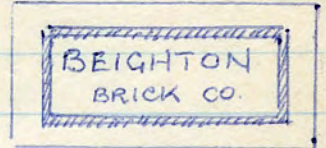 BEIGHTON
BRICK CO.